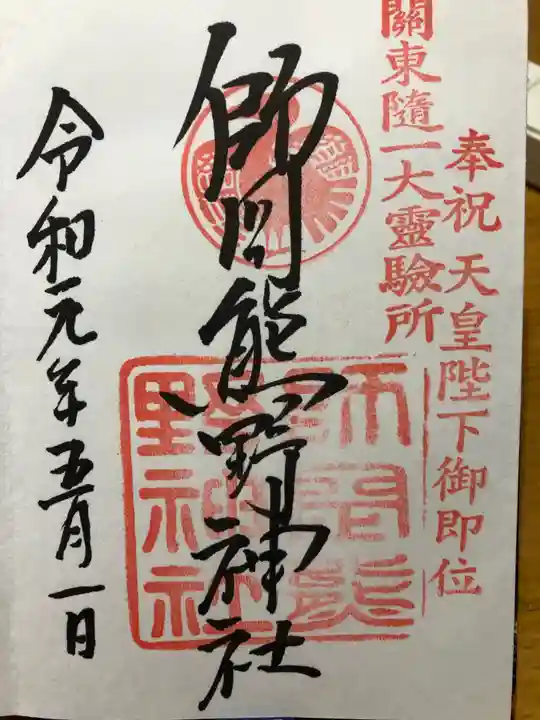 奉祝 天皇陛下御即位
關東隨一大靈驗所
師岡熊野神社
師岡熊野神社
令和元年五月一日